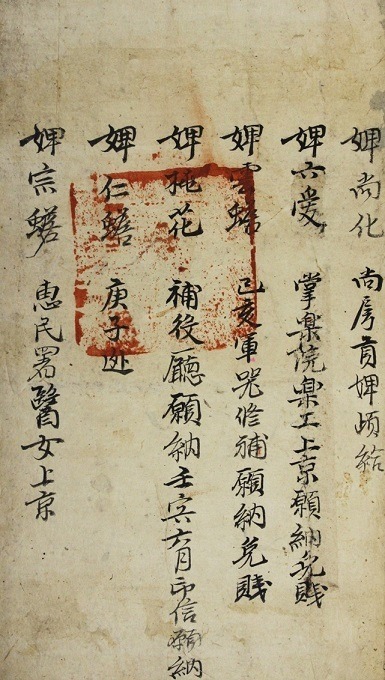 婢尚化 尚房首婢頉給
婢六愛 掌樂院樂工上京願納免賤
婢雲蟾 己亥軍器修補願納免賤
婢花 補役廳願納壬寅六月印信願納
婢仁蟾 庚子逃
婢宗蟾 惠民署醫女上京